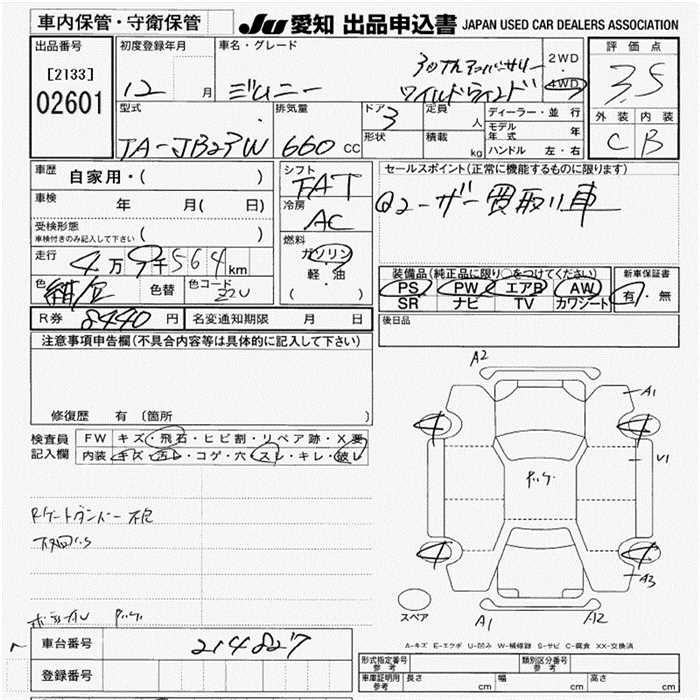 車内保管・守衛保管
JU 愛知 出品申込書 JAPAN USED CAR DEALERS ASSOCIATION
出品番号
[2133]
02601
初度登録年月
12 月
車名・グレード
ジムニー
ワイルドウインド
2WD
・
4WD
評価点
3.5
外装 内装
C B
型式
TA-JB23W
排気量
660 cc
ドア
3
形状
定員
人
積載
kg
ディーラー・並行
モデル年式 年
ハンドル 左・右
車歴
自家用・( )
車検
年 月( 日)
受検形態
車検付きのみ記入して下さい ( )
走行
4万9千564km
色
色替
色コード
Z2U
シフト
FAT
冷房
AC
燃料
ガソリン
軽・油
( )
セールスポイント(正常に機能するものに限ります)
ユーザー買取り車
装備品(純正品に限り○をつけてください)
PS PW エアB AW
SR ナビ TV カワシート
新車保証書
有・無
後日品
R券 8440 円
名変通知期限 月 日
注意事項申告欄(不具合内容等は具体的に記入して下さい)
修復歴 有〔箇所 〕
検査員
記入欄
FW キズ・飛石・ヒビ割・リペア跡・X要
内装 キズ・汚レ・コゲ・穴・スレ・キレ・破レ
A2
A1
4
4
U1
4
4
A3
スペア
A1
A2
A-キズ E-エクボ U-凹み W-補修跡 S-サビ C-腐食 XX-交換済
車台番号
214827
登録番号
型式指定番号
参考
類別区分番号
参考
車庫証明用
参考
長さ cm
幅 cm
高さ cm